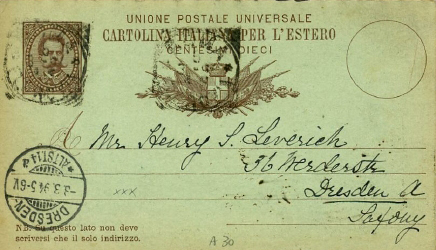 UNIONE POSTALE UNIVERSALE
CARTOLINA ITALIANA PER L'ESTERO
CENTESIMI DIECI
A Mr. Henry S. Leverich
36 Werderstr
Dresden A
Saxony
DRESDEN
* ALTST. 14 *
-8.3.94.5-6V
xxx
N.B. Su questo lato non deve
scriversi che il solo indirizzo.
A 30